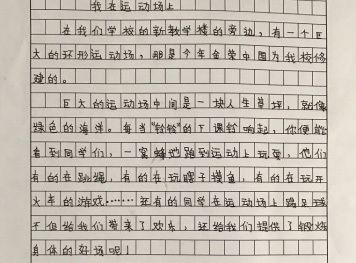 我在运动场上
在我们学校的新教学楼的旁边，有一个巨
大的环形运动场，那是今年金荣中国为我校修
建的。
巨大的运动场中间是一块人生草坪，就像
绿色的海洋。每当“铃铃”的下课铃响起，你便能
看到同学们，一窝蜂地跑到运动上玩耍，他们
有的在跳绳，有的在玩瞎子摸鱼，有的在玩开
火车的游戏……还有的同学在运动场上踢足球
不但给我们带来了欢乐，还给我们提供了锻炼
身体的好场呢！